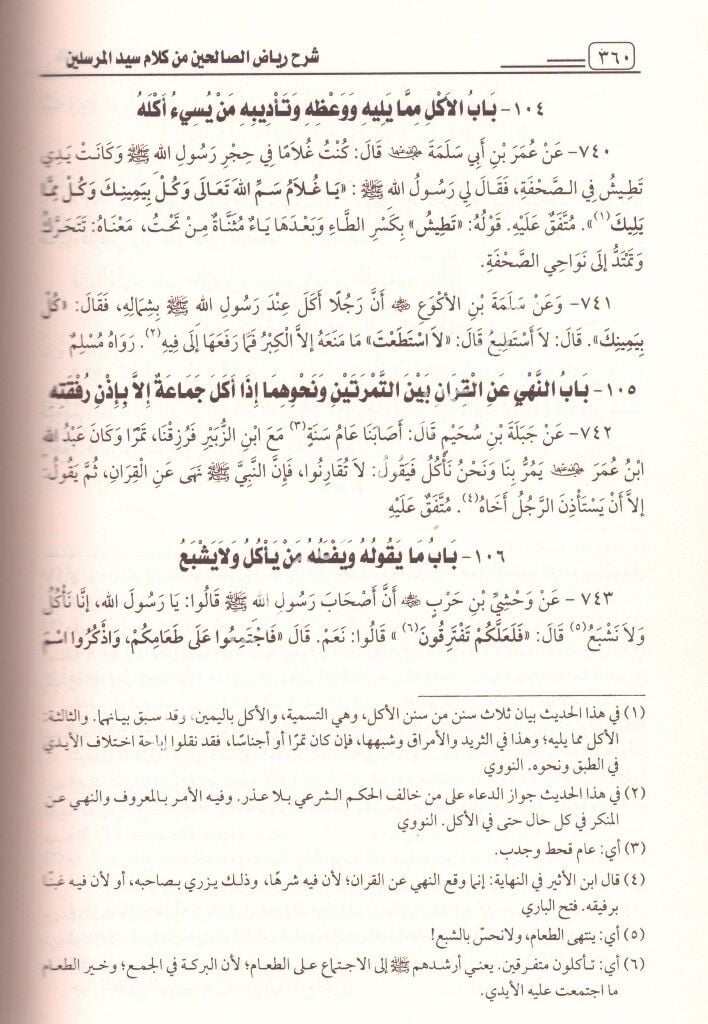 ٣٦٠
شرح رياض الصالحين من كلام سيد المرسلين
١٠٤- بَابُ الأَكْلِ مِمَّا يَلِيهِ وَوَعْظِهِ وَتَأْدِيبِهِ مَنْ يُسِيءُ أَكْلَهُ
٧٤٠- عَنْ عُمَرَ بْنِ أَبِي سَلَمَةَ رضي الله عنهما قَالَ: كُنْتُ غُلَامًا فِي حِجْرِ رَسُولِ الله ﷺ وَكَانَتْ يَدِي
تَطِيشُ فِي الصَّحْفَةِ، فَقَالَ لِي رَسُولُ الله ﷺ: «يَا غُلَامُ سَمِّ اللهَ تَعَالَى وَكُلْ بِيَمِينِكَ وَكُلْ مِمَّا
يَلِيكَ(١)». مُتَّفَقٌ عَلَيْهِ. قَوْلُهُ: «تَطِيشُ» بِكَسْرِ الطَّاءِ وَبَعْدَهَا يَاءٌ مُثَنَّاةٌ مِنْ تَحْتُ، مَعْنَاهُ: تَتَحَرَّكُ
وَتَمْتَدُّ إِلَى نَوَاحِي الصَّحْفَةِ.
٧٤١- وَعَنْ سَلَمَةَ بْنِ الأَكْوَعِ رضي الله عنه أَنَّ رَجُلًا أَكَلَ عِنْدَ رَسُولِ الله ﷺ بِشِمَالِهِ، فَقَالَ: «كُلْ
بِيَمِينِكَ». قَالَ: لاَ أَسْتَطِيعُ قَالَ: «لاَ اسْتَطَعْتَ» مَا مَنَعَهُ إِلاَّ الْكِبْرُ فَمَا رَفَعَهَا إِلَى فِيهِ(٢). رَوَاهُ مُسْلِمٌ
١٠٥- بَابُ النَّهْيِ عَنِ الْقِرَانِ بَيْنَ التَّمْرَتَيْنِ وَنَحْوِهِمَا إِذَا أَكَلَ جَمَاعَةٌ إِلاَّ بِإِذْنِ رُفْقَتِهِ
٧٤٢- عَنْ جَبَلَةَ بْنِ سُحَيْمٍ قَالَ: أَصَابَنَا عَامُ سَنَةٍ(٣) مَعَ ابْنِ الزُّبَيْرِ فَرُزِقْنَا، تَمْرًا وَكَانَ عَبْدُ الله
ابْنُ عُمَرَ رضي الله عنهما يَمُرُّ بِنَا وَنَحْنُ نَأْكُلُ فَيَقُولُ: لاَ تُقَارِنُوا، فَإِنَّ النَّبِيَّ ﷺ نَهَى عَنِ الْقِرَانِ، ثُمَّ يَقُولُ:
إلاَّ أَنْ يَسْتَأْذِنَ الرَّجُلُ أَخَاهُ(٤). مُتَّفَقٌ عَلَيْهِ
١٠٦- بَابُ مَا يَقُولُهُ وَيَفْعَلُهُ مَنْ يَأْكُلُ وَلاَ يَشْبَعُ
٧٤٣- عَنْ وَحْشِيِّ بْنِ حَرْبٍ رضي الله عنه أَنَّ أَصْحَابَ رَسُولِ الله ﷺ قَالُوا: يَا رَسُولَ الله، إِنَّا نَأْكُلُ
وَلاَ نَشْبَعُ(٥) قَالَ: «فَلَعَلَّكُمْ تَفْتَرِقُونَ(٦)» قَالُوا: نَعَمْ. قَالَ «فَاجْتَمِعُوا عَلَى طَعَامِكُمْ، وَاذْكُرُوا اسْمَ
(١) في هذا الحديث بيان ثلاث سنن من سنن الأكل، وهي التسمية، والأكل باليمين، وقد سبق بيانهما. والثالثة:
الأكل مما يليه؛ وهذا في الثريد والأمراق وشبهها، فإن كان تمرًا أو أجناسًا، فقد نقلوا إباحة اختلاف الأيدي
في الطبق ونحوه. النووي
(٢) في هذا الحديث جواز الدعاء على من خالف الحكم الشرعي بلا عذر. وفيه الأمر بالمعروف والنهي عن
المنكر في كل حال حتى في الأكل. النووي
(٣) أي: عام قحط وجدب.
(٤) قال ابن الأثير في النهاية: إنما وقع النهي عن القران؛ لأن فيه شرهًا، وذلك يزري بصاحبه، أو لأن فيه غبنًا
برفيقه. فتح الباري
(٥) أي: ينتهي الطعام، ولا نحسّ بالشبع!
(٦) أي: تأكلون متفرقين. يعني أرشدهم ﷺ إلى الاجتماع على الطعام؛ لأن البركة في الجمع؛ وخير الطعام
ما اجتمعت عليه الأيدي.